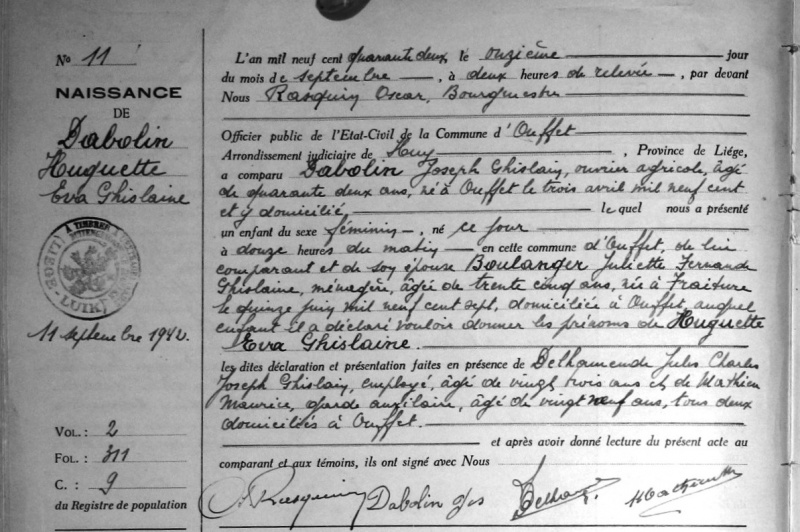 No 11
NAISSANCE
DE
Dabolin
Huguette
Eva Ghislaine
11 septembre 1942.
VOL.: 2
FOL.: 311
C. : 9
du Registre de population
L'an mil neuf cent quarante deux le onzième jour
du mois de septembre, à deux heures de relevée, par devant
Nous Rasquin Oscar, Bourgmestre
Officier public de l'Etat-Civil de la Commune d'Ouffet
Arrondissement judiciaire de Huy, Province de Liége,
a comparu Dabolin Joseph Ghislain, ouvrier agricole, âgé
de quarante deux ans, né à Ouffet le trois avril mil neuf cent
et y domicilié, le quel nous a présenté
un enfant du sexe féminin, né ce jour
à douze heures du matin en cette commune d'Ouffet, de lui
comparant et de son épouse Boulanger Juliette Fernande
Ghislaine, ménagère, âgée de trente cinq ans, née à Fraiture
le quinze juin mil neuf cent sept, domiciliée à Ouffet, auquel
enfant il a déclaré vouloir donner les prénoms de Huguette
Eva Ghislaine.
les dites déclaration et présentation faites en présence de Delhamende Jules Charles
Joseph Ghislain, employé, âgé de vingt trois ans et de Mathieu
Maurice, garde auxilaire, âgé de vingt neuf ans, tous deux
domiciliés à Ouffet.
et après avoir donné lecture du présent acte au
comparant et aux témoins, ils ont signé avec Nous
Rasquin Dabolin